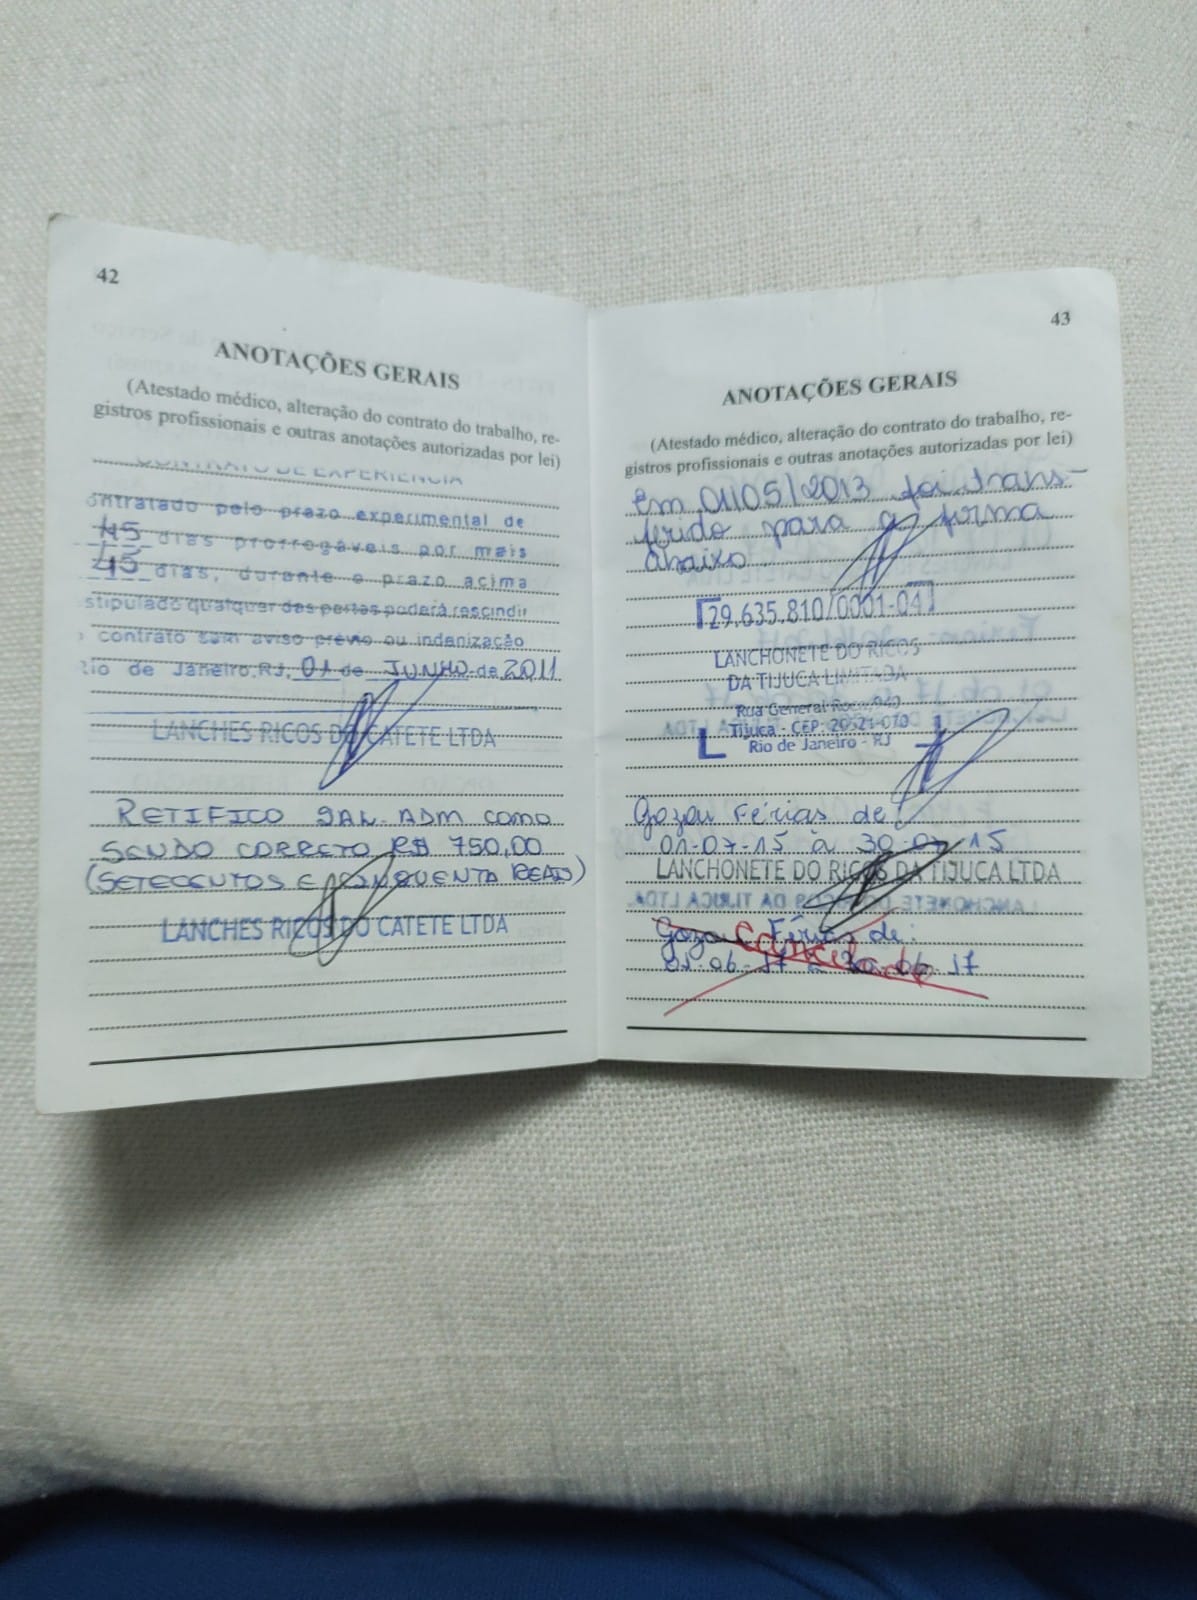 42
ANOTAÇÕES GERAIS
(Atestado médico, alteração do contrato do trabalho, re-
gistros profissionais e outras anotações autorizadas por lei)
CONTRATO DE EXPERIÊNCIA
ontratado pelo prazo experimental de
45 dias prorrogáveis por mais
45 dias, durante o prazo acima
stipulado qualquer das partes poderá rescindir
o contrato sem aviso prévio ou indenização
Rio de Janeiro, RJ, 01 de JUNHO de 2011
LANCHES RICOS DO CATETE LTDA
RETIFICO SAL. ADM COMO
SENDO CORRETO R$ 750,00
(SETECENTOS E CINQUENTA REAIS)
LANCHES RICOS DO CATETE LTDA
43
ANOTAÇÕES GERAIS
(Atestado médico, alteração do contrato do trabalho, re-
gistros profissionais e outras anotações autorizadas por lei)
Em 01/05/2013 foi trans-
ferido para a firma
abaixo.
29.635.810/0001-04
LANCHONETE DO RICOS
DA TIJUCA LIMITADA
Rua General Roca, 940
Tijuca - CEP: 20521-070
Rio de Janeiro - RJ
Gozou Férias de:
01-07-15 à 30-07-15
LANCHONETE DO RICOS DA TIJUCA LTDA
Gozou Férias de:
01.06.17 à 30.06.17
Cancelado